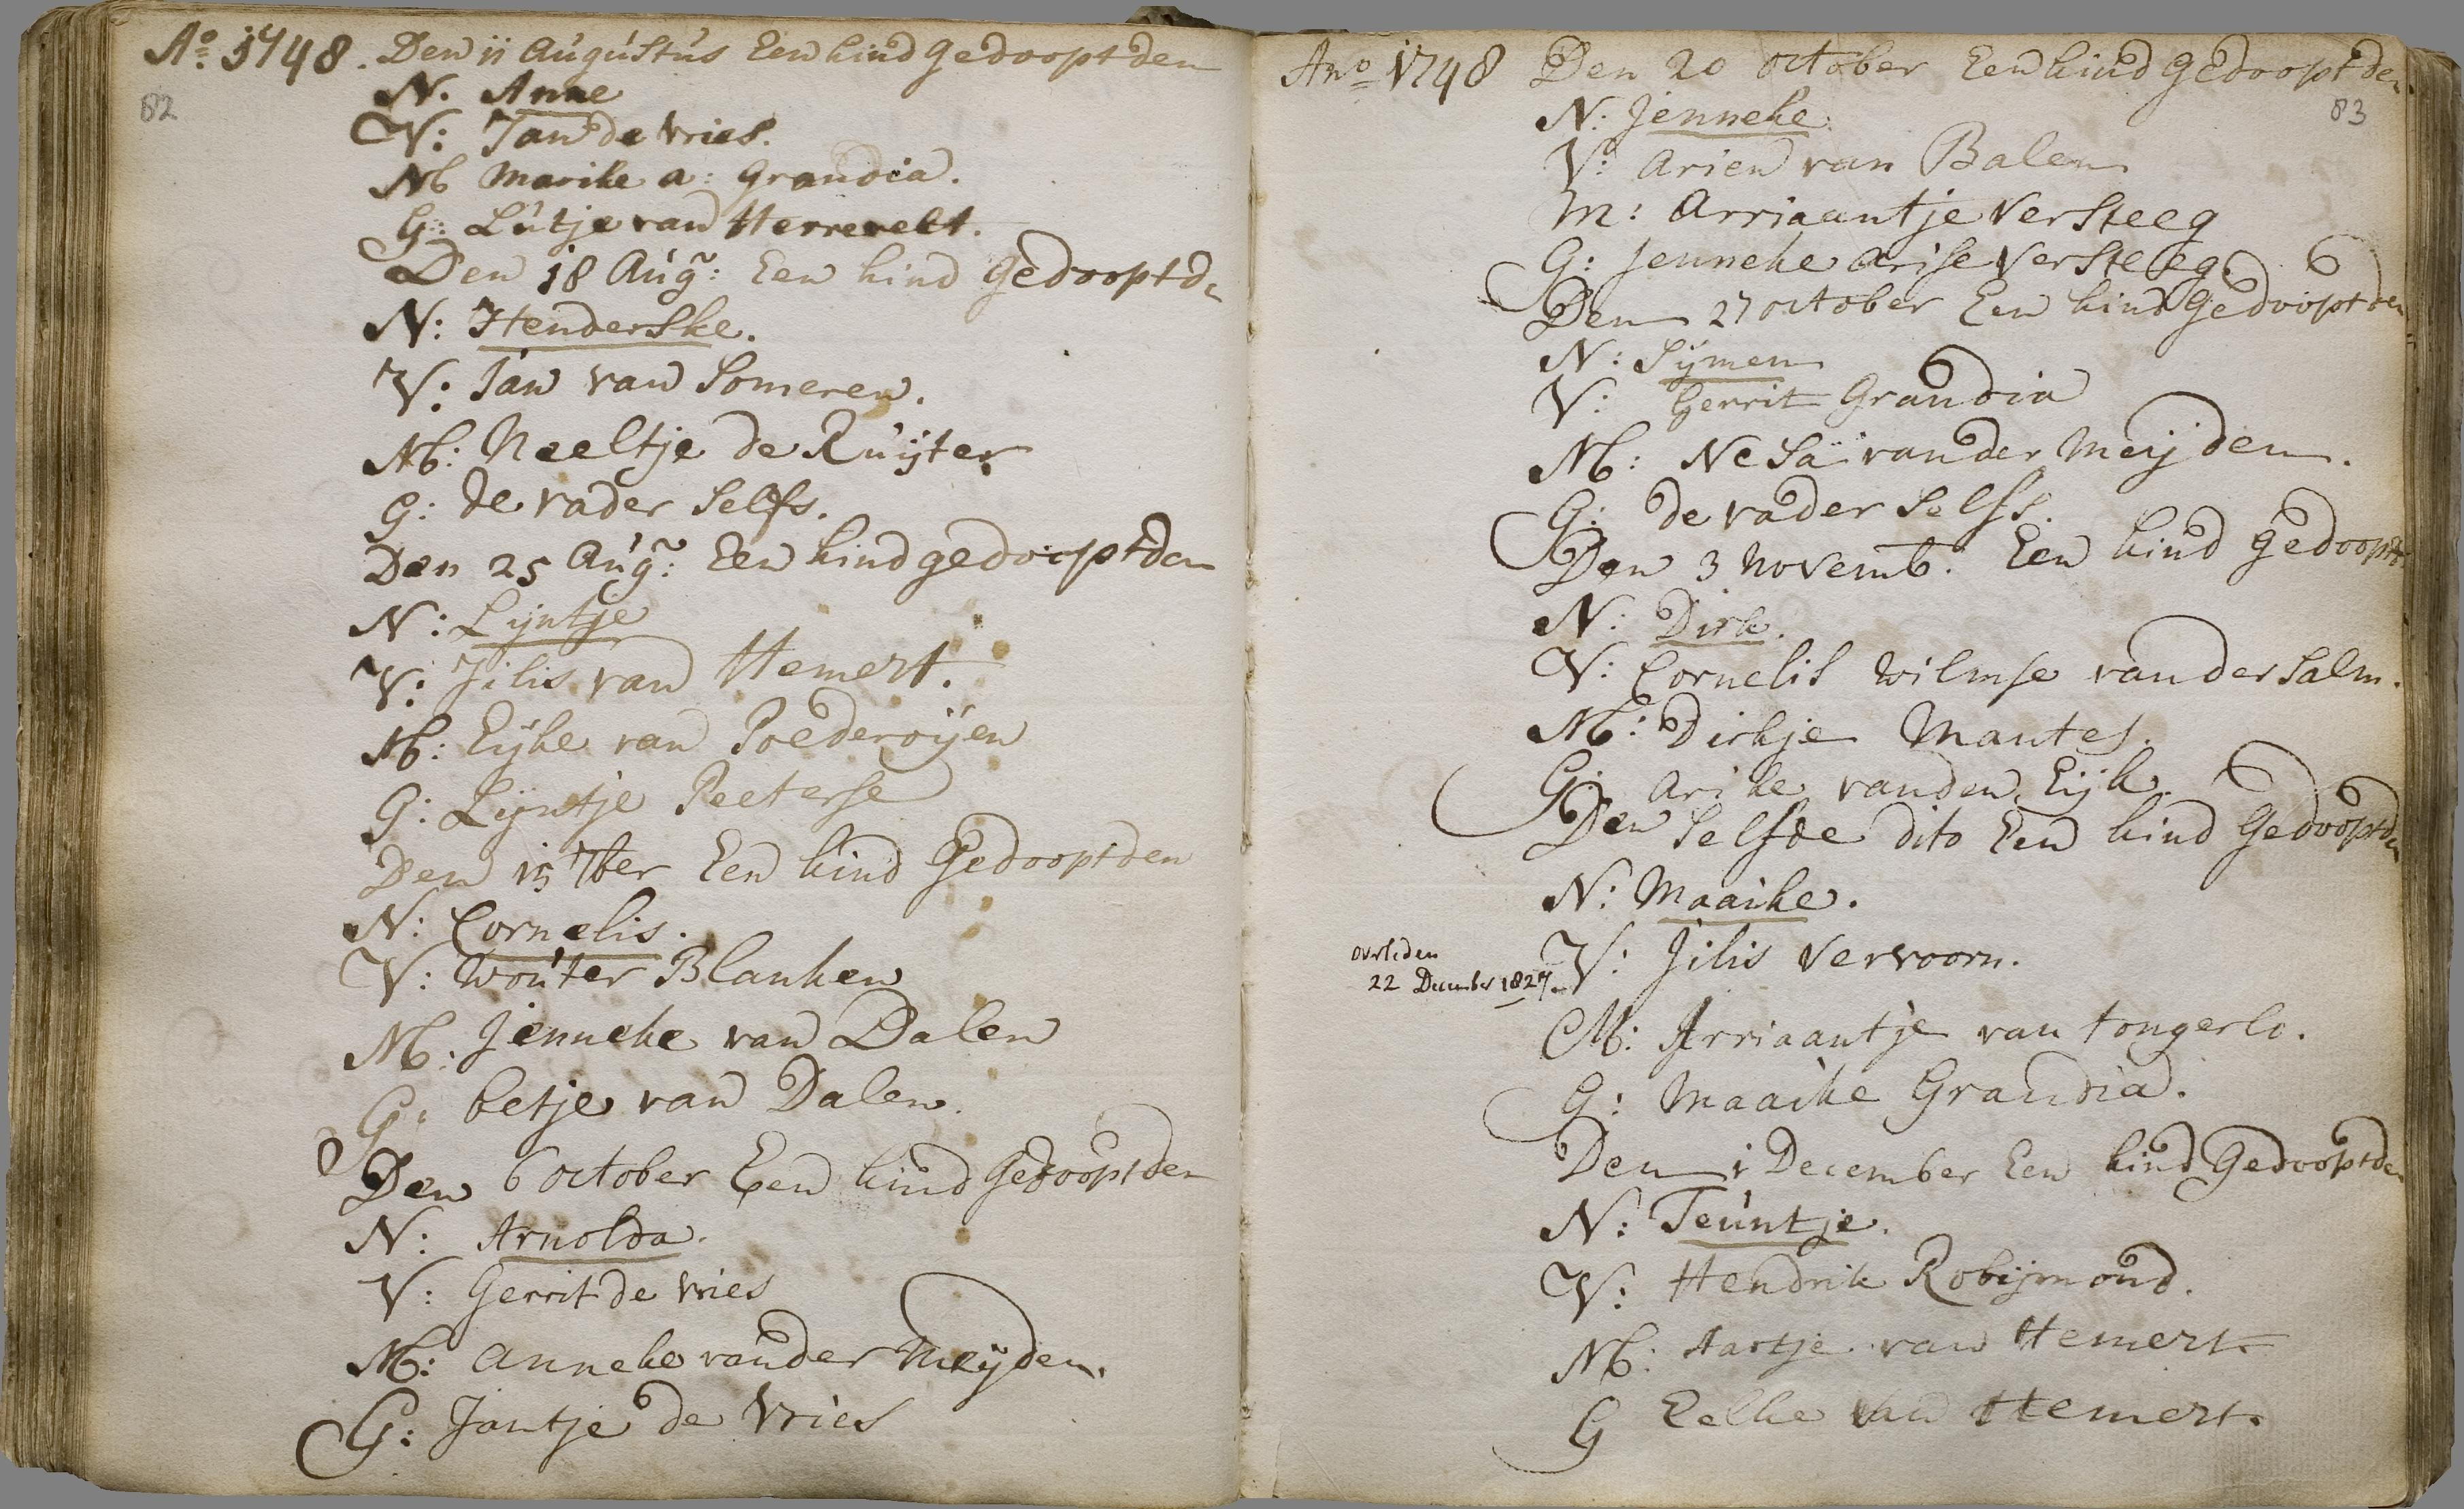 Ao: 1748. Den 11 Augustus Een kind gedoopt den
82
N. Anne
V: Jan de Vries.
M Marike a: Grandia.
G: Lutje van Herrevelt.
Den 18 Aug: Een kind Gedoopt dn
N: Henderske.
V: Jan van Someren.
M: Neeltje de Ruijter
G: de vader Selfs.
Den 25 Aug: Een kind gedoopt den
N: Lijntje
V: Jilis van Hemert.
M: Eijke van Poederoijen
G: Lijntje Peeterse
Den 15 7ber Een kind Gedoopt den
N: Cornelis.
V: Wouter Blanken
M: Jenneke van Dalen
G: betje van Dalen.
Den 6 october Een kind Gedoopt den
N: Arnolda.
V: Gerrit de Vries
M: Anneke van der Meijden.
G: Jantje de Vries
Ano 1748 Den 20 october Een kind gedoopt den
83
N: Jenneke.
V: Arien van Balen
M: Arriaantje VerSteeg
G: Jenneke Arise VerSteeg.
Den 27 october Een kind Gedoopt den
N: Sijmen
V: Gerrit Grandia
M: NeSa van der Meijden.
G: de vader Selfs.
Den 3 Novemb: Een kind gedoopt
N: Dirk.
V: Cornelis Wilmse van der Salm.
M: Dirkje Mantes.
G: Arike van den Eijk.
Den Selfde dito Een kind Gedoopt den
N: Maaike.
overleden
22 December 1827.
V: Jilis Vervoorn.
M: Arriaantje van tongerlo.
G: Maaike Grandia.
Den 1 December Een kind Gedoopt den
N: Teuntje.
V: Hendrik Robijmond.
M: Aartje van Hemert.
G Eelke van Hemert.